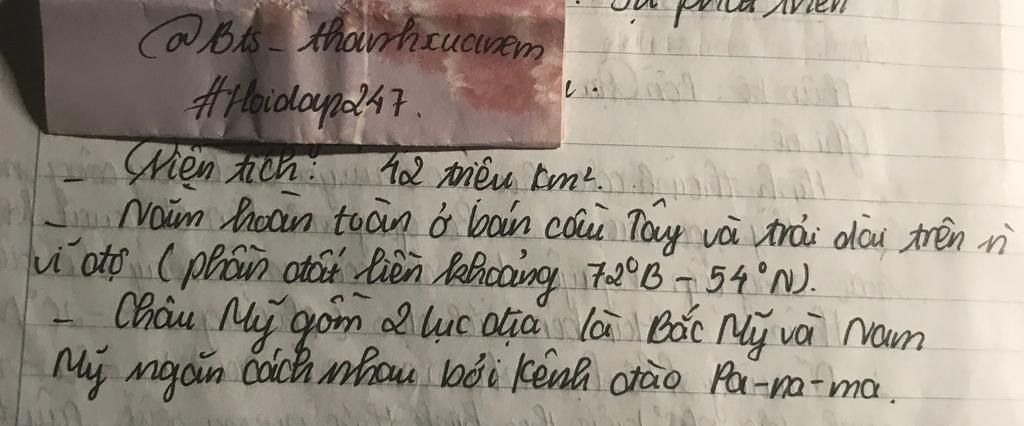 Sự phát triển
@Bts_thanhxuanem
#Hoidap247.
- Diện tích: 42 triệu km².
- Nằm hoàn toàn ở bán cầu Tây và trải dài trên n
vĩ độ (phần đất liền khoảng 72°B - 54°N).
- Châu Mỹ gồm 2 lục địa là Bắc Mỹ và Nam
Mỹ ngăn cách nhau bởi kênh đào Pa-na-ma.